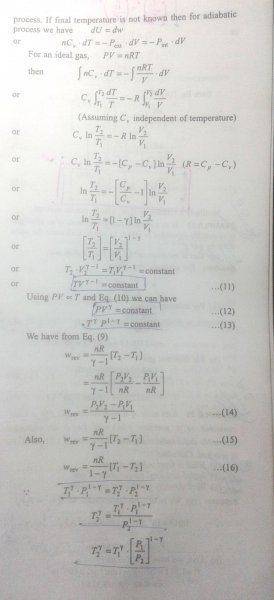 process. If final temperature is not known then for adiabatic
process we have dU = dw
or nC_v · dT = −P_ext · dV = −P_int · dV
For an ideal gas, PV = nRT
then ∫ nC_v · dT = −∫ nRT/V · dV
or C_v ∫_{T_1}^{T_2} dT/T = −R ∫_{V_1}^{V_2} dV/V
(Assuming C_v independent of temperature)
or C_v ln T_2/T_1 = −R ln V_2/V_1
or C_v ln T_2/T_1 = −[C_p − C_v] ln V_2/V_1 (R = C_p − C_v)
ln T_2/T_1 = −[C_p/C_v − 1] ln V_2/V_1
or ln T_2/T_1 = [1 − γ] ln V_2/V_1
or [T_2/T_1] = [V_2/V_1]^{1−γ}
or T_2 · V_2^{γ−1} = T_1V_1^{γ−1} = constant
or TV^{γ−1} = constant ...(11)
Using PV ∝ T and Eq. (10) we can have
PV^γ = constant ...(12)
T^γ P^{1−γ} = constant ...(13)
We have from Eq. (9)
w_rev = nR/(γ−1) [T_2 − T_1]
= nR/(γ−1) [P_2V_2/nR − P_1V_1/nR]
w_rev = (P_2V_2 − P_1V_1)/(γ−1) ...(14)
Also, w_rev = nR/(γ−1) [T_2 − T_1] ...(15)
w_rev = nR/(1−γ) [T_1 − T_2] ...(16)
∵ T_1^γ · P_1^{1−γ} = T_2^γ · P_2^{1−γ}
T_2^γ = T_1^γ · P_1^{1−γ}/P_2^{1−γ}
T_2^γ = T_1^γ · [P_1/P_2]^{1−γ}